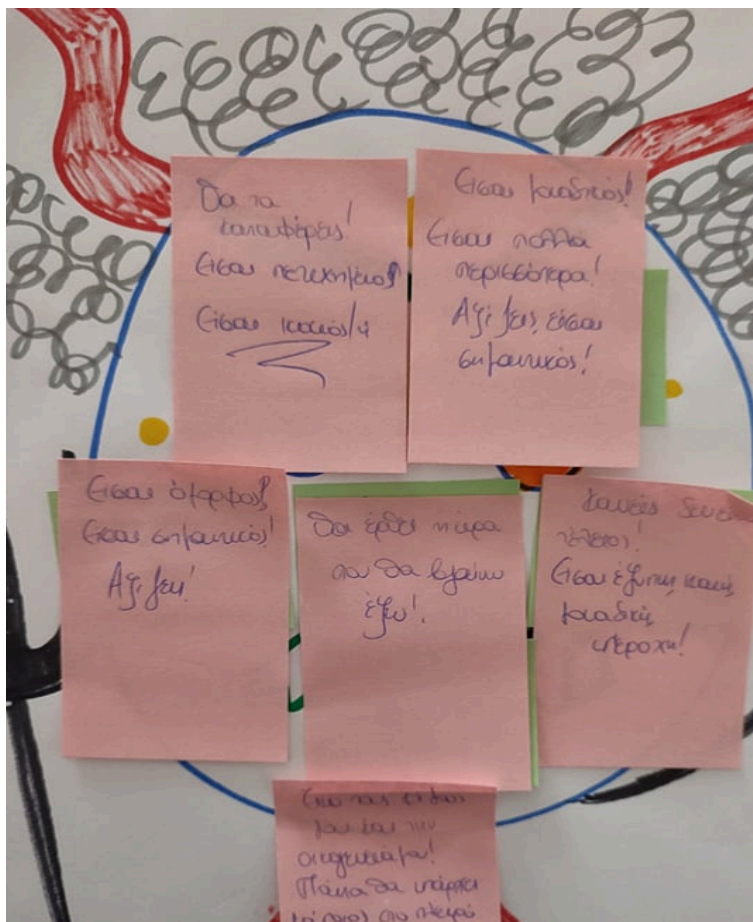 Θα τα
καταφέρεις!
Είσαι πετυχημένος!
Είσαι ικανός/ή
Είσαι μοναδικός!
Είσαι πολλά
περισσότερα!
Αξίζεις, είσαι
σημαντικός!
Είσαι όμορφος!
Είσαι σημαντικός!
Αξίζεις!
Θα έρθει η ώρα
που θα βγαίνω
έξω!
Κανείς δεν εί
τέλειος!
Είσαι έξυπνη, ικανή,
μοναδική,
υπέροχη!
μου και την
οικογένειά μου!
Πάντα θα υπάρχει
κάποιος στο πλευρό